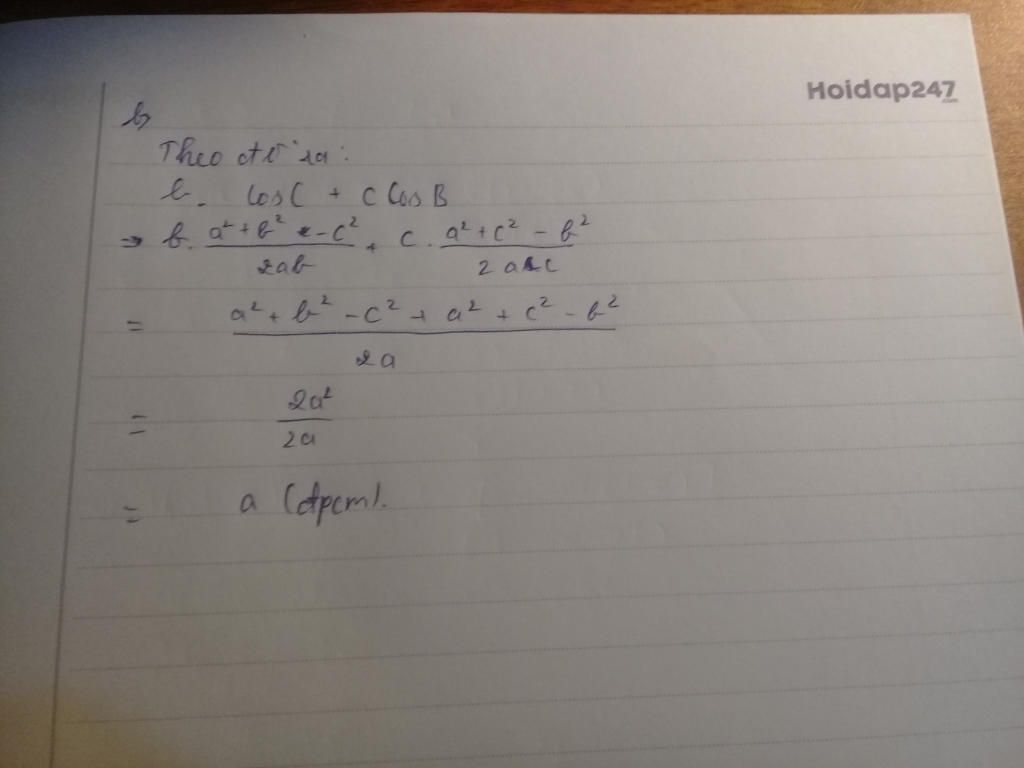 Hoidap247
.com
b,
Theo đề ra:
b. cosC + c CosB
=> b. (a² + b² - c²)/(2ab) + c. (a² + c² - b²)/(2ac)
= (a² + b² - c² + a² + c² - b²)/(2a)
= 2a²/2a
= a (đpcm).